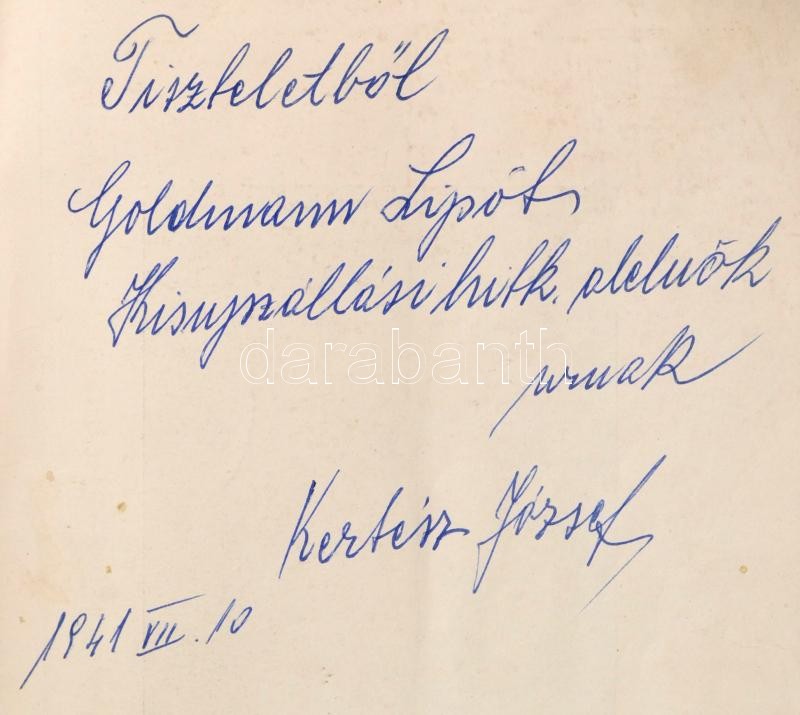 Tiszteletből
Goldmann Lipót
Kisujszállási hitk. alelnök
urnak
darabanth
Kertész József
1941 VII. 10